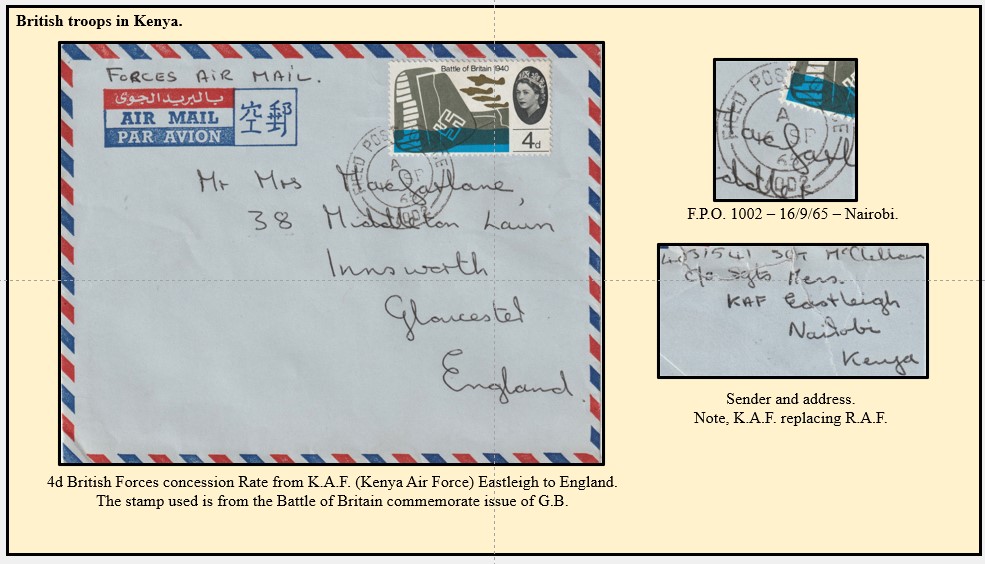 British troops in Kenya.
FORCES AIR MAIL.
بالبريد الجوى
AIR MAIL
PAR AVION
空郵
Battle of Britain 1940
4d
FIELD POST
A
SP
65
1002
Mr Mrs Macfarlane
38 Middleton Lawn
Innsworth
Gloucester
England.
FIELD POS
A
SP
65
1002
F.P.O. 1002 – 16/9/65 – Nairobi.
SGT McClellan
c/o Sgts Mess.
KAF Eastleigh
Nairobi
Kenya
Sender and address.
Note, K.A.F. replacing R.A.F.
4d British Forces concession Rate from K.A.F. (Kenya Air Force) Eastleigh to England.
The stamp used is from the Battle of Britain commemorate issue of G.B.